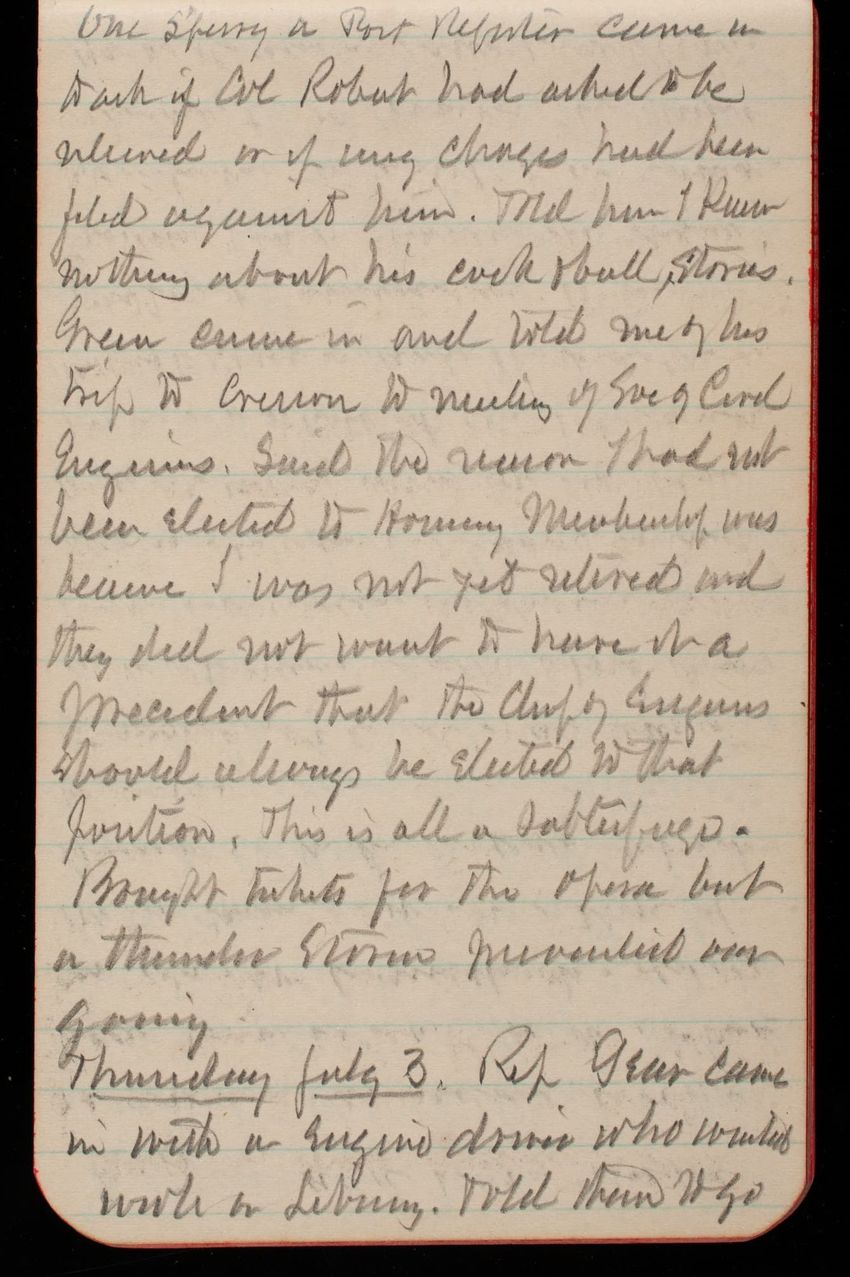 One Sperry a Post Reporter came in
to ask if Col Robert had asked to be
relieved or if any charges had been
filed against him. Told him I knew
nothing about his cock & bull stories.
Green came in and told me of his
trip to Cresson to meeting of Soc of Civil
Engineers. Said the reason I had not
been elected to Honorary Membership was
because I was not yet retired and
they did not want to have it a
precedent that the Chief of Engineers
should always be elected to that
position. This is all a subterfuge.
Bought tickets for the opera but
a thunder storm prevented our
going
Thursday July 3. Rep Gear came
in with a Engine driver who wanted
work on Library. Told them to go